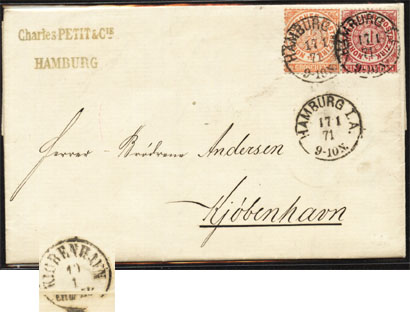 Charles PETIT & Cie
HAMBURG
HAMBURG I.A.
17 1
71
9-10N.
HAMBURG I.A.
17 1
71
9-10N.
HAMBURG I.A.
17 1
71
9-10N.
Herren Brödrene Andersen
Kjöbenhavn
KIØBENHAVN